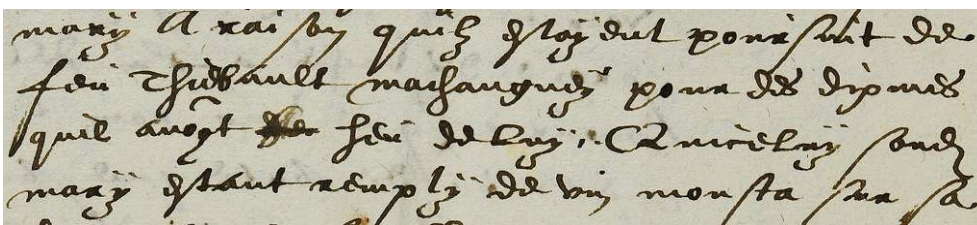 mary A raison quilz estoyent poursuit de
feu Thiebault machanguey pour des dixmes
quil avoyt heu de luy, Qu iceluy sond
mary estant remply de vin monsta sur sa